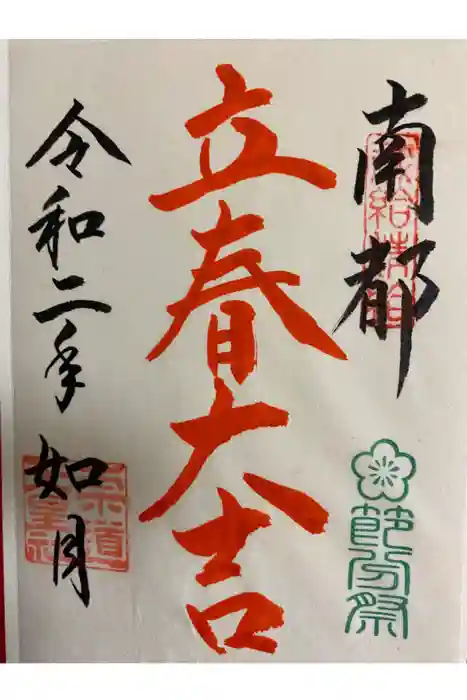 南都
節分祭
立春大吉
令和二年
如月